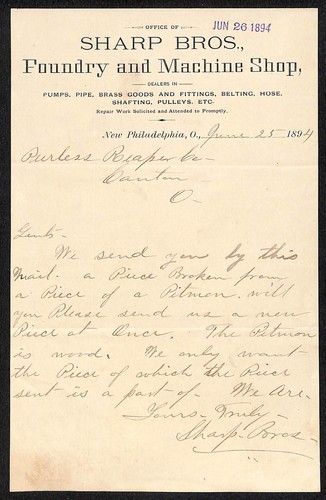 OFFICE OF
JUN 26 1894
SHARP BROS.,
Foundry and Machine Shop,
DEALERS IN
PUMPS, PIPE, BRASS GOODS AND FITTINGS, BELTING, HOSE,
SHAFTING, PULLEYS, ETC.
Repair Work Solicited and Attended to Promptly.
New Philadelphia, O., June 25 1894
Purless Reaper Co-
Canton
O-
Gents-
We send you by this
Mail. a Piece Broken from
a Piece of a Pitmon. will
you Please send us a new
Piece at Once. The Pitmon
is wood. We only want
the Piece of which the Piece
sent is a part of. We Are.
Yours- Truly-
Sharp- Bros-